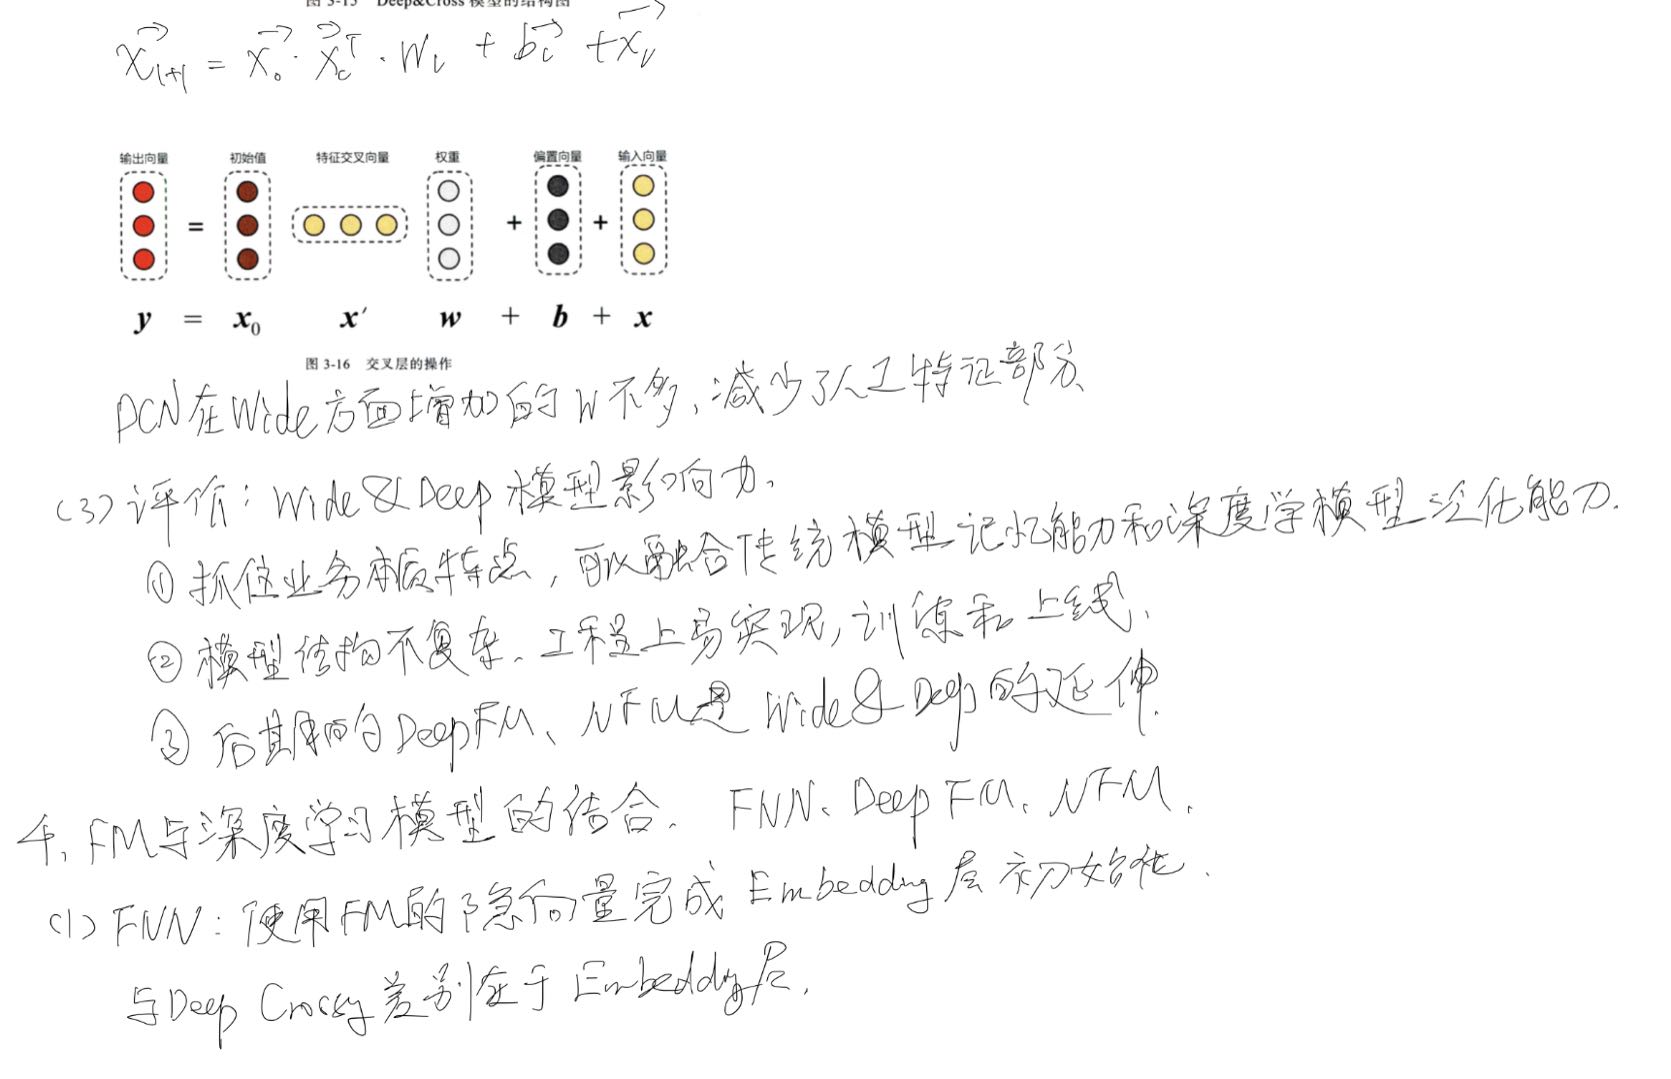 图 3-15 Deep&Cross 模型的结构图
x⃗_{l+1} = x⃗_0 · x⃗_l^T · W_l + b⃗_l + x⃗_l
输出向量 初始值 特征交叉向量 权重 偏置向量 输入向量
= + +
y = x₀ x′ w + b + x
图 3-16 交叉层的操作
DCN在Wide方面增加的W不多,减少了人工特征部分、
(3)评价:Wide&Deep模型影响力.
① 抓住业务本质特点,可以融合传统模型记忆能力和深度学模型泛化能力.
② 模型结构不复杂、工程上易实现,训练和上线.
③ 后期的DeepFM、NFM是Wide&Deep的延伸.
4、FM与深度学习模型的结合. FNN、DeepFM、NFM.
(1) FNN:使用FM的隐向量完成Embedding层初始化.
与Deep Crossing差别在于Embedding层.